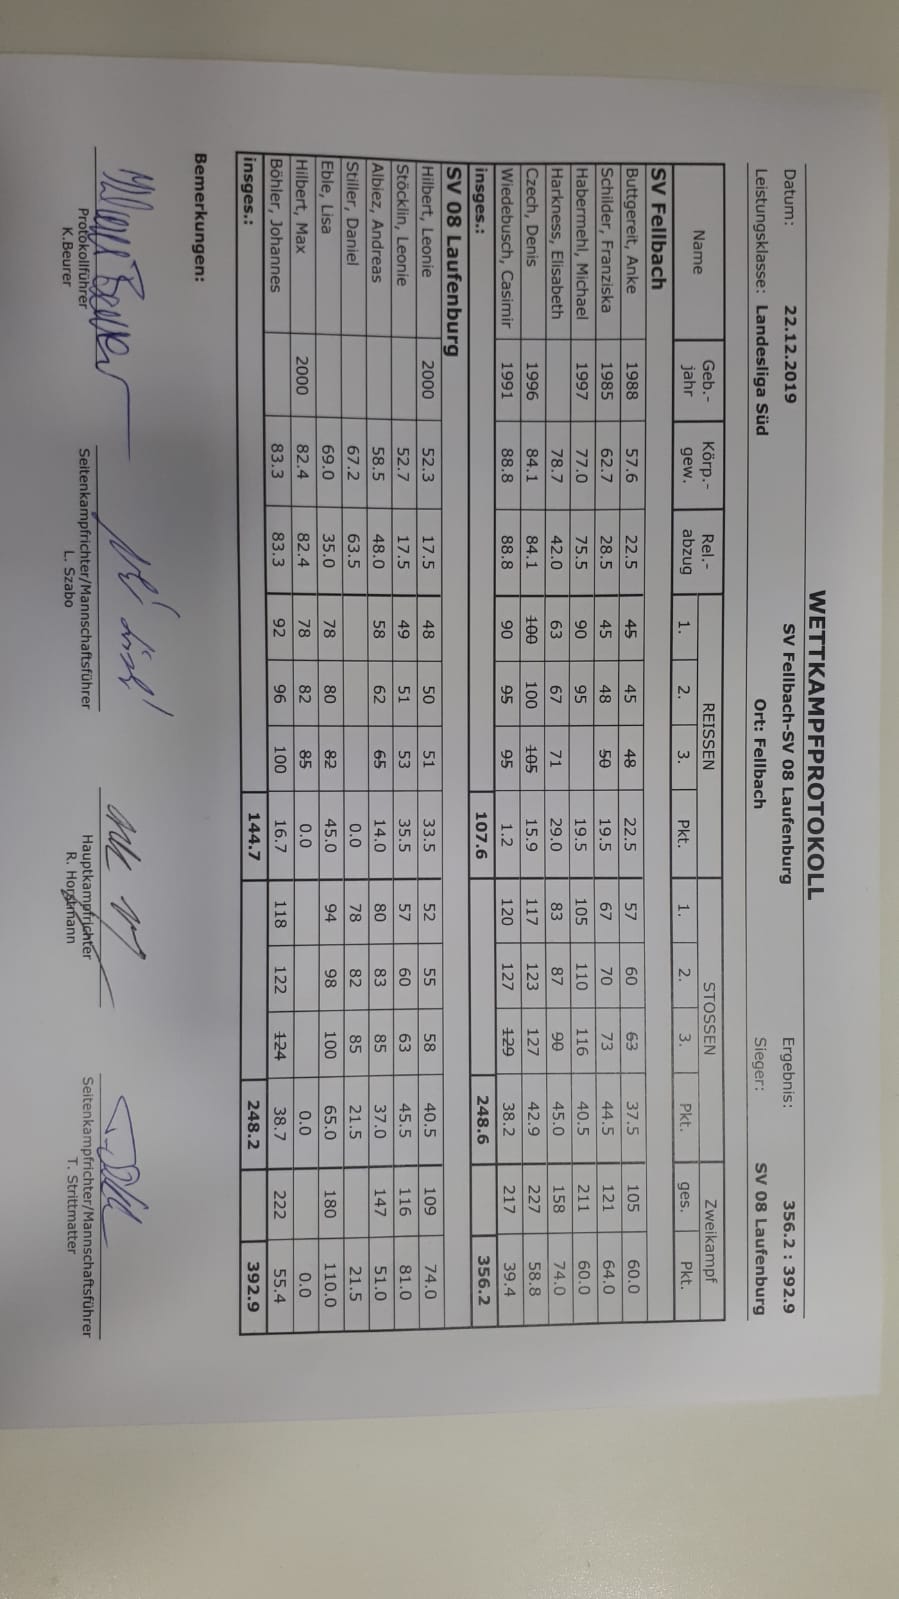 WETTKAMPFPROTOKOLL
Datum: 22.12.2019 SV Fellbach-SV 08 Laufenburg Ergebnis: 356.2 : 392.9
Leistungsklasse: Landesliga Süd Ort: Fellbach Sieger: SV 08 Laufenburg
Name Geb.-jahr Körp.-gew. Rel.-abzug REISSEN 1. 2. 3. Pkt. STOSSEN 1. 2. 3. Pkt. Zweikampf ges. Pkt.
SV Fellbach
Buttgereit, Anke 1988 57.6 22.5 45 45 48 22.5 57 60 63 37.5 105 60.0
Schilder, Franziska 1985 62.7 28.5 45 48 50 19.5 67 70 73 44.5 121 64.0
Habermehl, Michael 1997 77.0 75.5 90 95 19.5 105 110 116 40.5 211 60.0
Harkness, Elisabeth 78.7 42.0 63 67 71 29.0 83 87 90 45.0 158 74.0
Czech, Denis 1996 84.1 84.1 100 100 105 15.9 117 123 127 42.9 227 58.8
Wiedebusch, Casimir 1991 88.8 88.8 90 95 95 1.2 120 127 129 38.2 217 39.4
insges.: 107.6 248.6 356.2
SV 08 Laufenburg
Hilbert, Leonie 2000 52.3 17.5 48 50 51 33.5 52 55 58 40.5 109 74.0
Stöcklin, Leonie 52.7 17.5 49 51 53 35.5 57 60 63 45.5 116 81.0
Albiez, Andreas 58.5 48.0 58 62 65 14.0 80 83 85 37.0 147 51.0
Stiller, Daniel 67.2 63.5 0.0 78 82 85 21.5 21.5
Eble, Lisa 69.0 35.0 78 80 82 45.0 94 98 100 65.0 180 110.0
Hilbert, Max 2000 82.4 82.4 78 82 85 0.0 0.0 0.0
Böhler, Johannes 83.3 83.3 92 96 100 16.7 118 122 124 38.7 222 55.4
insges.: 144.7 248.2 392.9
Bemerkungen:
Protokollführer Seitenkampfrichter/Mannschaftsführer Hauptkampfrichter Seitenkampfrichter/Mannschaftsführer
K.Beurer L. Szabo R. Horstmann T. Strittmatter